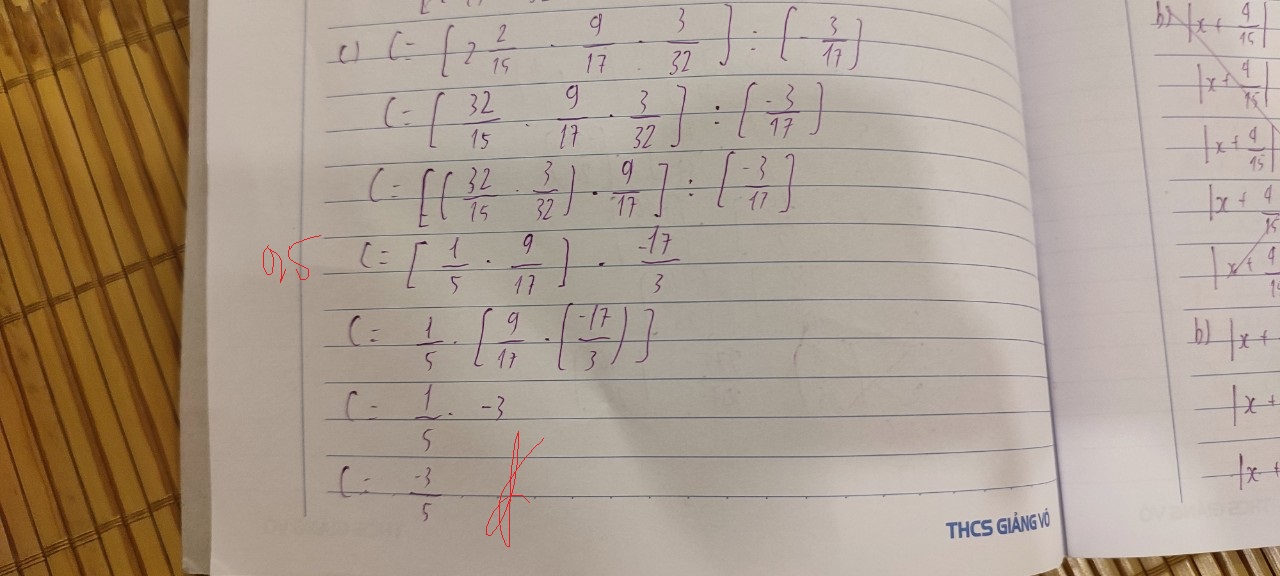 c) C = [2 2/15 . 9/17 . 3/32] : [- 3/17]
C = [32/15 . 9/17 . 3/32] : [-3/17]
C = [(32/15 . 3/32) . 9/17] : [-3/17]
0,5
C = [1/5 . 9/17] . -17/3
C = 1/5 . [9/17 . (-17/3)]
C = 1/5 . -3
C = -3/5
THCS GIẢNG VÕ
b) |x + 4/15|
|x + 4/15|
|x + 4/15|
|x + 4/15|
|x + 4/15|
b) |x +
|x +
|x +